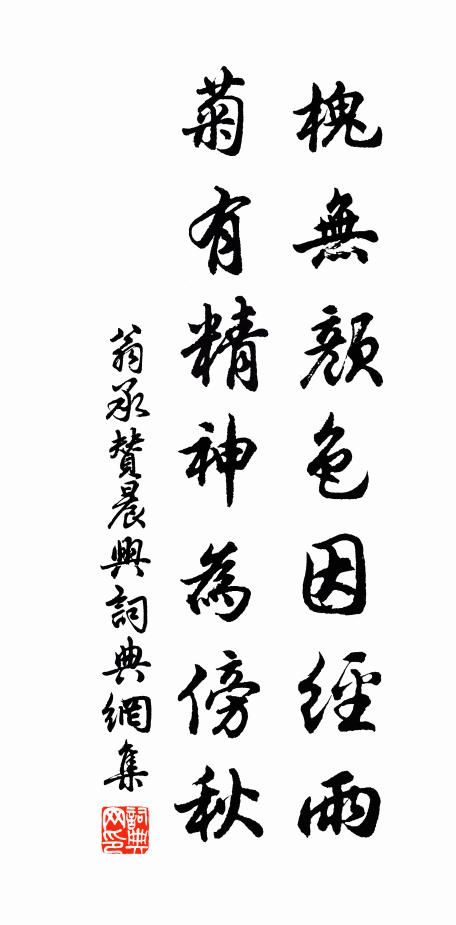 槐無顏色因經雨
菊有精神為傍秋
翁承贊晨興詞典網集
詞典网印